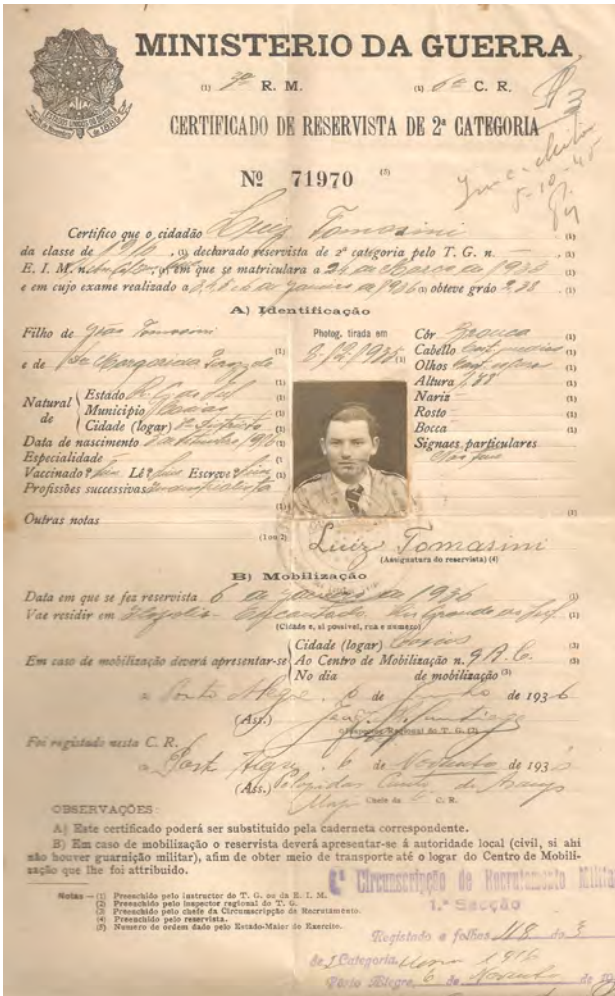 MINISTERIO DA GUERRA
(1) R. M. (1) 6ª C. R.
CERTIFICADO DE RESERVISTA DE 2ª CATEGORIA
Nº 71970 (5)
5-10-45
Certifico que o cidadão Luiz Tomasini (1)
da classe de 1916, (1) declarado reservista de 2ª categoria pelo T. G. n. (1)
E. I. M. n. (1) em que se matriculara a 24 de Março de 1935
e em cujo exame realizado a de Janeiro de 1936 (1) obteve gráo 2,38 (1)
A) Identificação
Filho de João Tomasini (1)
e de Margarida (1)
Natural de
Estado R. G. do Sul (1)
Municipio Caxias (1)
Cidade (logar) Districto (1)
Data de nascimento 1916 (1)
Especialidade (1)
Vaccinado? Sim Lê? Sim Escreve? Sim (1)
Profissões successivas (1)
Outras notas (1 ou 2)
Photog. tirada em
1935 (1)
Côr Branca (1)
Cabello Cast. (1)
Olhos Cast. (1)
Altura 1,88 (1)
Nariz (1)
Rosto (1)
Bocca (1)
Signaes particulares
Não tem
(3)
Luiz Tomasini
(Assignatura do reservista) (4)
B) Mobilização
Data em que se fez reservista 6 de Janeiro de 1936 (1)
Vae residir em Encantado Rio Grande do Sul (1)
(Cidade e, si possivel, rua e numero)
Em caso de mobilização deverá apresentar-se
Cidade (logar) Caxias (3)
Ao Centro de Mobilização n. 9 (3)
No dia de mobilização (3)
Porto Alegre, 6 de Junho de 1936
(Ass.)
Inspector Regional do T. G. (2)
Foi registado nesta C. R.
Porto Alegre, 6 de Novembro de 193
(Ass.) Pelopidas de Araujo
Maj. Chefe da C. R.
OBSERVAÇÕES:
A) Este certificado poderá ser substituido pela caderneta correspondente.
B) Em caso de mobilização o reservista deverá apresentar-se á autoridade local (civil, si ahi
não houver guarnição militar), afim de obter meio de transporte até o logar do Centro de Mobili-
zação que lhe foi attribuido.
Notas — (1) Preenchido pelo instructor do T. G. ou da E. I. M.
(2) Preenchido pelo inspector regional do T. G.
(3) Preenchido pelo chefe da Circumscripção de Recrutamento.
(4) Preenchido pelo reservista.
(5) Numero de ordem dado pelo Estado-Maior do Exercito.
6ª Circumscripção de Recrutamento Milita
1.ª Secção
Registado a folhas 118 do 3
de Categoria, 1916
Porto Alegre, 6 de Novembro de